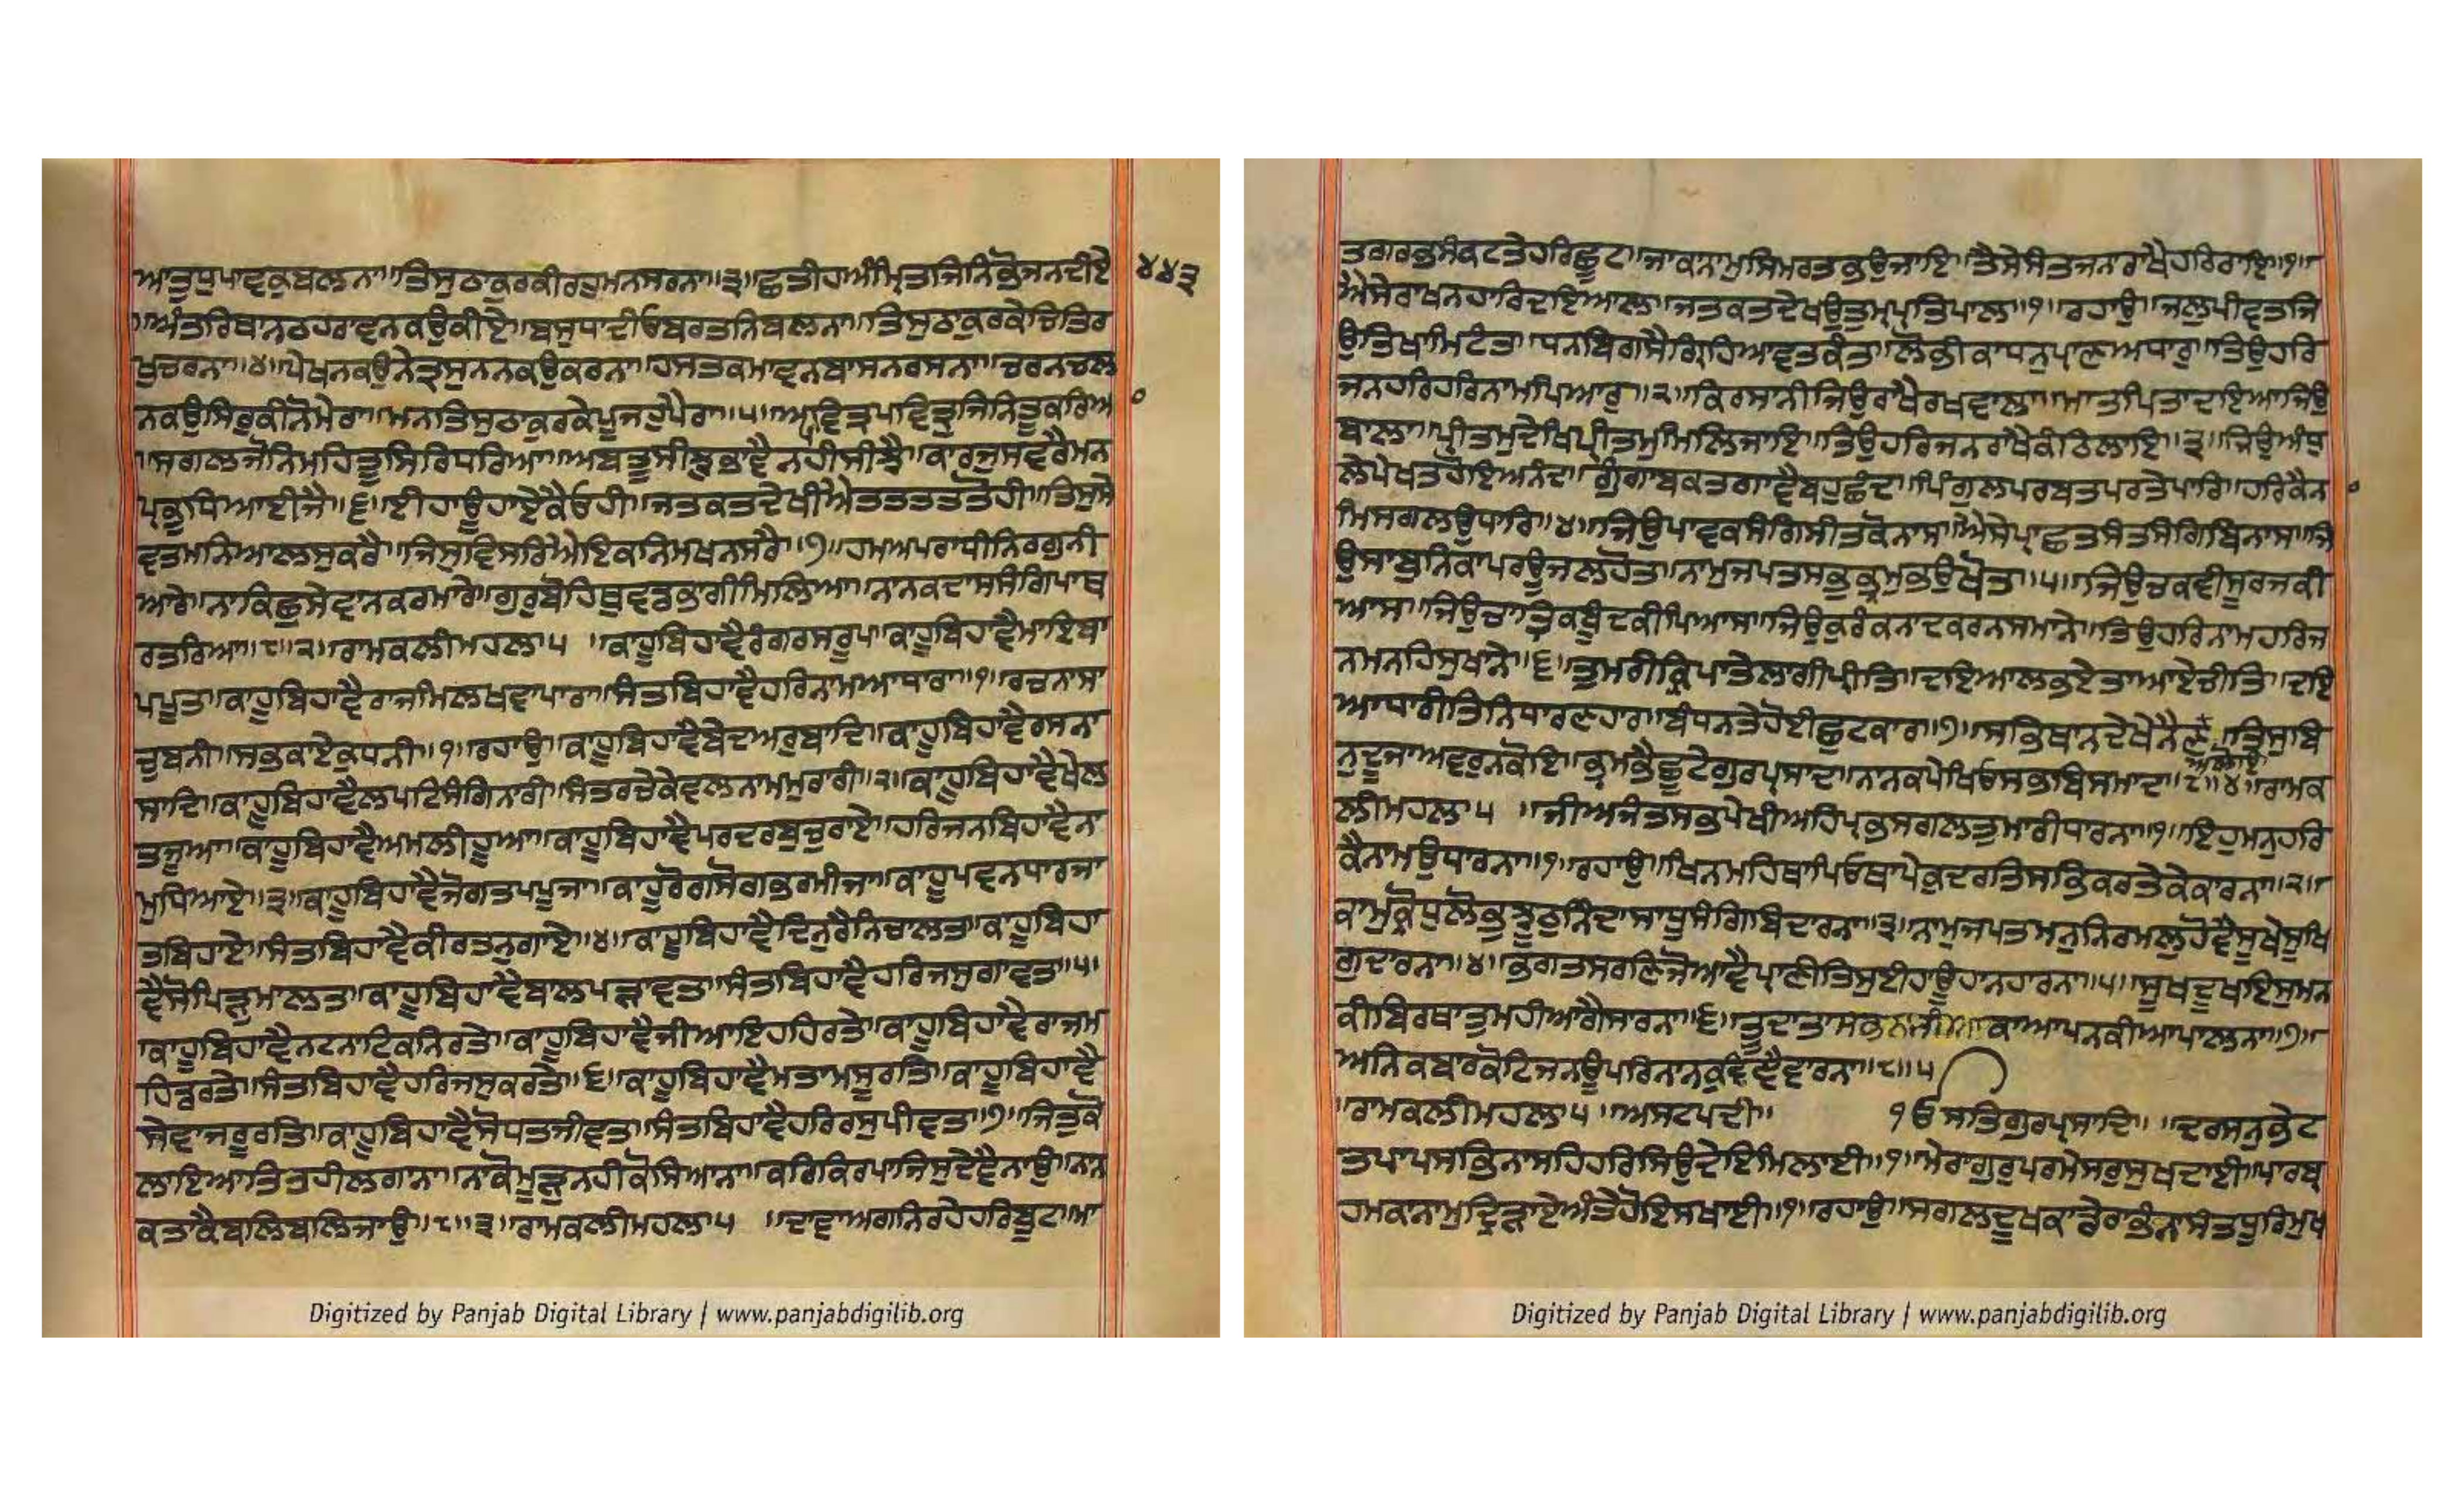 ਆਤੁਧੁਪਾਵਕੁਬਲਨਾ॥ਤਿਸੁਠਾਕੁਰਕੀਰਹੁਮਨਸਰਨਾ॥੩॥ਛਤੀਹਅੰਮ੍ਰਿਤਜਿਨਿਭੋਜਨਦੀਏ
੪੪੩
॥ਅੰਤਰਿਥਾਨਠਹਰਾਵਨਕਉਕੀਏ॥ਬਸੁਧਾਦੀਓਬਰਤਨਿਬਲਨਾ॥ਤਿਸੁਠਾਕੁਰਕੇਚਿਤਿਰ
ਖੁਚਰਨਾ॥੪॥ਪੇਖਨਕਉਨੇਤ੍ਰਸੁਨਨਕਉਕਰਨਾ॥ਹਸਤਕਮਾਵਨਬਾਸਨਰਸਨਾ॥ਚਰਨਚਲ
ਨਕਉਸਿਰੁਕੀਨੋਮੇਰਾ॥ਮਨਤਿਸੁਠਾਕੁਰਕੇਪੂਜਹੁਪੈਰਾ॥੫॥ਅਪਵਿਤ੍ਰਪਵਿਤ੍ਰੁਜਿਨਿਤੂਕਰਿਆ
॥ਸਗਲਜੋਨਿਮਹਿਤੂਸਿਰਿਧਰਿਆ॥ਅਬਤੂਸੀਝੁਭਾਵੈਨਹੀਸੀਝੈ॥ਕਾਰਜੁਸਵਰੈਮਨ
ਪ੍ਰਭੁਧਿਆਈਜੈ॥੬॥ਈਹਾਊਹਾਏਕੈਓਹੀ॥ਜਤਕਤਦੇਖੀਐਤਤਤਤਤੋਹੀ॥ਤਿਸੁਸੇ
ਵਤਮਨਿਆਲਸੁਕਰੈ॥ਜਿਸੁਵਿਸਰਿਐਇਕਨਿਮਖਨਸਰੈ॥੭॥ਹਮਅਪਰਾਧੀਨਿਰਗੁਨੀ
ਆਰੇ॥ਨਾਕਿਛੁਸੇਵਾਨਕਰਮਾਰੇ॥ਗੁਰੁਬੋਹਿਥੁਵਡਭਾਗੀਮਿਲਿਆ॥ਨਾਨਕਦਾਸਸੰਗਿਪਾਥ
ਰਤਰਿਆ॥੮॥੨॥ਰਾਮਕਲੀਮਹਲਾ੫ ॥ਕਾਹੂਬਿਹਾਵੈਰੰਗਰਸਰੂਪ॥ਕਾਹੂਬਿਹਾਵੈਮਾਇਬਾ
ਪਪੂਤ॥ਕਾਹੂਬਿਹਾਵੈਰਾਜਮਿਲਖਵਾਪਾਰਾ॥ਸੰਤਬਿਹਾਵੈਹਰਿਨਾਮਆਧਾਰਾ॥੧॥ਰਚਨਾਸਾ
ਚੁਬਨੀ॥ਸਭਕਾਏਕੁਧਨੀ॥੧॥ਰਹਾਉ॥ਕਾਹੂਬਿਹਾਵੈਬੇਦਅਰੁਬਾਦਿ॥ਕਾਹੂਬਿਹਾਵੈਰਸਨਾ
ਸਾਦਿ॥ਕਾਹੂਬਿਹਾਵੈਲਪਟਿਸੰਗਿਨਾਰੀ॥ਸੰਤਰਚੇਕੇਵਲਨਾਮਮੁਰਾਰੀ॥੨॥ਕਾਹੂਬਿਹਾਵੈਖੇਲ
ਤਜੂਆ॥ਕਾਹੂਬਿਹਾਵੈਅਮਲੀਹੂਆ॥ਕਾਹੂਬਿਹਾਵੈਪਰਦਰਬੁਚੁਰਾਏ॥ਹਰਿਜਨਬਿਹਾਵੈਨਾ
ਮੁਧਿਆਏ॥੩॥ਕਾਹੂਬਿਹਾਵੈਜੋਗਤਪਪੂਜਾ॥ਕਾਹੂਰੋਗਸੋਗਭਰਮੀਜਾ॥ਕਾਹੂਪਵਨਧਾਰਜਾ
ਤਬਿਹਾਏ॥ਸੰਤਬਿਹਾਵੈਕੀਰਤਨੁਗਾਏ॥੪॥ਕਾਹੂਬਿਹਾਵੈਦਿਨੁਰੈਨਿਚਾਲਤ॥ਕਾਹੂਬਿਹਾ
ਵੈਸੋਪਿੜੁਮਾਲਤ॥ਕਾਹੂਬਿਹਾਵੈਬਾਲਪੜਾਵਤ॥ਸੰਤਬਿਹਾਵੈਹਰਿਜਸੁਗਾਵਤ॥੫॥
॥ਕਾਹੂਬਿਹਾਵੈਨਟਨਾਟਿਕਨਿਰਤੇ॥ਕਾਹੂਬਿਹਾਵੈਜੀਆਇਹਹਿਰਤੇ॥ਕਾਹੂਬਿਹਾਵੈਰਾਜਮ
ਹਿਡਰਤੇ॥ਸੰਤਬਿਹਾਵੈਹਰਿਜਸੁਕਰਤੇ॥੬॥ਕਾਹੂਬਿਹਾਵੈਮਤਾਮਸੂਰਤਿ॥ਕਾਹੂਬਿਹਾਵੈ
ਸੇਵਾਜਰੂਰਤਿ॥ਕਾਹੂਬਿਹਾਵੈਸੋਧਤਜੀਵਤ॥ਸੰਤਬਿਹਾਵੈਹਰਿਰਸੁਪੀਵਤ॥੭॥ਜਿਤੁਕੋ
ਲਾਇਆਤਿਤਹੀਲਗਾਨਾ॥ਨਾਕੋਮੂੜੁਨਹੀਕੋਸਿਆਨਾ॥ਕਰਿਕਿਰਪਾਜਿਸੁਦੇਵੈਨਾਉ॥ਨਾਨ
ਕਤਾਕੈਬਲਿਬਲਿਜਾਉ॥੮॥੩॥ਰਾਮਕਲੀਮਹਲਾ੫ ॥ਦਾਵਾਅਗਨਿਰਹੇਹਰਿਬੂਟ॥ਮਾ
Digitized by Panjab Digital Library | www.panjabdigilib.org
ਤਗਰਭਸੰਕਟਤੇਹਰਿਛੂਟ॥ਜਾਕਨਾਮੁਸਿਮਰਤਭਉਜਾਇ॥ਤੈਸੇਸੰਤਜਨਰਾਖੈਹਰਿਰਾਇ॥੧॥
ਐਸੇਰਾਖਨਹਾਰਦਇਆਲ॥ਜਤਕਤਦੇਖਉਤੁਮ੍ਪ੍ਰਤਿਪਾਲ॥੧॥ਰਹਾਉ॥ਜਲੁਪੀਵਤਜਿ
ਉਤਿਖਾਮਿਟੰਤ॥ਧਨਬਿਗਸੈਗ੍ਰਿਹਿਆਵਤਕੰਤ॥ਲੋਭੀਕਾਧਨੁਪ੍ਰਾਣਅਧਾਰੁ॥ਤਿਉਹਰਿ
ਜਨਹਰਿਹਰਿਨਾਮਪਿਆਰੁ॥੨॥ਕਿਰਸਾਨੀਜਿਉਰਾਖੈਰਖਵਾਲਾ॥ਮਾਤਪਿਤਾਦਇਆਜਿਉ
ਬਾਲਾ॥ਪ੍ਰੀਤਮੁਦੇਖਿਪ੍ਰੀਤਮੁਮਿਲਿਜਾਇ॥ਤਿਉਹਰਿਜਨਰਾਖੈਕੰਠਿਲਾਇ॥੩॥ਜਿਉਅੰਧੁ
ਲੇਪੇਖਤਹੋਇਅਨੰਦ॥ਗੂੰਗਾਬਕਤਗਾਵੈਬਹੁਛੰਦ॥ਪਿੰਗੁਲਪਰਬਤਪਰਤੇਪਾਰਿ॥ਹਰਿਕੈਨਾ
ਮਿਸਗਲਉਧਾਰਿ॥੪॥ਜਿਉਪਾਵਕਸੰਗਿਸੀਤਕੋਨਾਸ॥ਐਸੇਪ੍ਰਾਛਤਸੰਤਸੰਗਿਬਿਨਾਸ॥ਜਿ
ਉਸਾਬੁਨਿਕਾਪਰਊਜਲਹੋਤ॥ਨਾਮੁਜਪਤਸਭੁਭ੍ਰਮੁਭਉਖੋਤ॥੫॥ਜਿਉਚਕਵੀਸੂਰਜਕੀ
ਆਸ॥ਜਿਉਚਾਤ੍ਰਿਕਬੂੰਦਕੀਪਿਆਸ॥ਜਿਉਕੁਰੰਕਨਾਦਕਰਨਸਮਾਨੇ॥ਤਿਉਹਰਿਨਾਮਹਰਿਜ
ਨਮਨਹਿਸੁਖਾਨੇ॥੬॥ਤੁਮਰੀਕ੍ਰਿਪਾਤੇਲਾਗੀਪ੍ਰੀਤਿ॥ਦਇਆਲਭਏਤਾਆਏਚੀਤਿ॥ਦਇ
ਆਧਾਰੀਤਿਨਿਧਾਰਣਹਾਰ॥ਬੰਧਨਤੇਹੋਈਛੁਟਕਾਰ॥੭॥ਸਭਿਥਾਨਦੇਖੇਨੈਣ ਅਲੋਇ॥ਤਿਸੁਬਿ
ਨੁਦੂਜਾਅਵਰੁਨਕੋਇ॥ਭ੍ਰਮਭੈਛੂਟੇਗੁਰਪ੍ਰਸਾਦ॥ਨਾਨਕਪੇਖਿਓਸਭੁਬਿਸਮਾਦ॥੮॥੪॥ਰਾਮਕ
ਲੀਮਹਲਾ੫ ॥ਜੀਅਜੰਤਸਭਿਪੇਖੀਅਹਿਪ੍ਰਭਸਗਲਤੁਮਾਰੀਧਾਰਨਾ॥੧॥ਇਹੁਮਨੁਹਰਿ
ਕੈਨਾਮਉਧਾਰਨਾ॥੧॥ਰਹਾਉ॥ਖਿਨਮਹਿਥਾਪਿਓਥਾਪੇਕੁਦਰਤਿਸਭਿਕਰਤੇਕੇਕਾਰਨਾ॥੨॥
ਕਾਮੁਕ੍ਰੋਧੁਲੋਭੁਝੂਠੁਨਿੰਦਾਸਾਧੂਸੰਗਿਬਿਦਾਰਨਾ॥੩॥ਨਾਮੁਜਪਤਮਨੁਨਿਰਮਲੁਹੋਵੈਸੂਖੇਸੂਖਿ
ਗੁਦਾਰਨਾ॥੪॥ਭਗਤਸਰਣਿਜੋਆਵੈਪ੍ਰਾਣੀਤਿਸੁਈਹਾਊਹਾਨਹਾਰਨਾ॥੫॥ਸੂਖਦੂਖਇਸੁਮਨ
ਕੀਬਿਰਥਾਤੁਮਹੀਆਗੈਸਾਰਨਾ॥੬॥ਤੂਦਾਤਾਸਭਨਾਜੀਆਕਾਆਪਨਕੀਆਪਾਲਨਾ॥੭॥
ਅਨਿਕਬਾਰਕੋਟਿਜਨਊਪਰਿਨਾਨਕੁਵੰਞੈਵਾਰਨਾ॥੮॥੫
॥ਰਾਮਕਲੀਮਹਲਾ੫ ॥ਅਸਟਪਦੀ॥ ੴਸਤਿਗੁਰਪ੍ਰਸਾਦਿ॥ ॥ਦਰਸਨੁਭੇਟ
ਤਪਾਪਸਭਿਨਾਸਹਿਹਰਿਸਿਉਦੇਇਮਿਲਾਈ॥੧॥ਮੇਰਾਗੁਰੁਪਰਮੇਸਰੁਸੁਖਦਾਈ॥ਪਾਰਬ੍ਰ
ਹਮਕਾਨਾਮੁਦ੍ਰਿੜਾਏਅੰਤੇਹੋਇਸਖਾਈ॥੧॥ਰਹਾਉ॥ਸਗਲਦੂਖਕਾਡੇਰਾਭੰਨਾਸੰਤਧੂਰਿਮੁਖ
Digitized by Panjab Digital Library | www.panjabdigilib.org